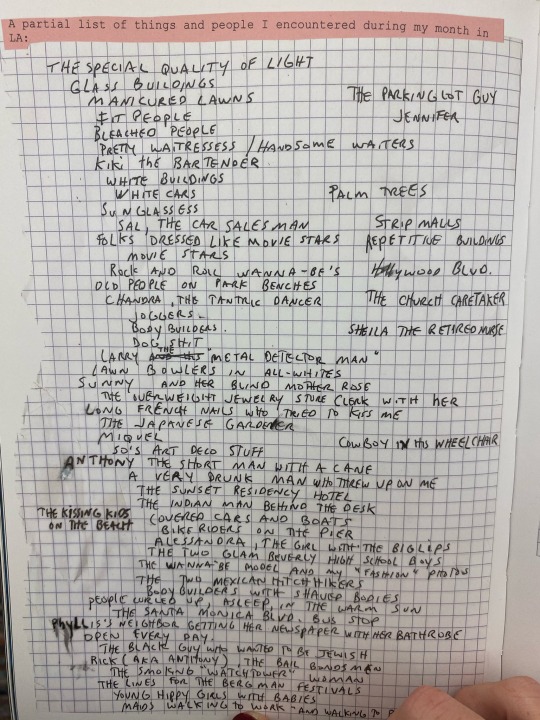 A partial list of things and people I encountered during my month in
LA:
THE SPECIAL QUALITY OF LIGHT
GLASS BUILDINGS
MANICURED LAWNS
THE PARKING LOT GUY
FIT PEOPLE
JENNIFER
BLEACHED PEOPLE
PRETTY WAITRESSESS / HANDSOME WAITERS
KiKi the BARTENDER
WHITE BUILDINGS
WHITE CARS
PALM TREES
SUNGLASSESS
SAL, THE CAR SALESMAN
STRIP MALLS
FOLKS DRESSED LIKE MOVIE STARS
REPETITIVE BUILDINGS
MOVIE STARS
ROCK AND ROLL WANNA-BE'S
Hollywood BLVD.
OLD PEOPLE ON PARK BENCHES
CHANDRA, THE TANTRIC DANCER
THE CHURCH CARETAKER
JOGGERS.
BODY BUILDERS.
SHEILA THE RETIRED NURSE
DOG SHIT
LARRY THE "METAL DETECTOR MAN"
LAWN BOWLERS IN ALL-WHITES
SUNNY AND HER BLIND MOTHER ROSE
THE OVERWEIGHT JEWELRY STORE CLERK WITH HER
LONG FRENCH NAILS WHO TRIED TO KISS ME
THE JAPANESE GARDENER
MIQUEL
COWBOY IN HIS WHEELCHAIR
50'S ART DECO STUFF
ANTHONY THE SHORT MAN WITH A CANE
A VERY DRUNK MAN WHO THREW UP ON ME
THE SUNSET RESIDENCY HOTEL
THE INDIAN MAN BEHIND THE DESK
THE KISSING KIDS
ON THE BEACH
COVERED CARS AND BOATS
BIKE RIDERS ON THE PIER
ALESSANDRA, THE GIRL WITH THE BIG LIPS
THE TWO GLAM BEVERLY HIGH SCHOOL BOYS
THE WANNA-BE MODEL AND MY "FASHION" PHOTOS
THE TWO MEXICAN HITCHHIKERS
BODYBUILDERS WITH SHAVED BODIES
PEOPLE CURLED UP, ASLEEP, IN THE WARM SUN
THE SANTA MONICA BLVD. BUS STOP
PHYLLIS'S NEIGHBOR GETTING HER NEWSPAPER WITH HER BATHROBE
OPEN EVERY DAY.
THE BLACK GUY WHO WANTED TO BE JEWISH
RICK (AKA ANTHONY), THE BAIL BONDSMAN
THE SMOKING "WATCHTOWER" WOMAN
THE LINES FOR THE BERGMAN FESTIVALS
YOUNG HIPPY GIRLS WITH BABIES
MAIDS WALKING TO WORK AND WALKING TO